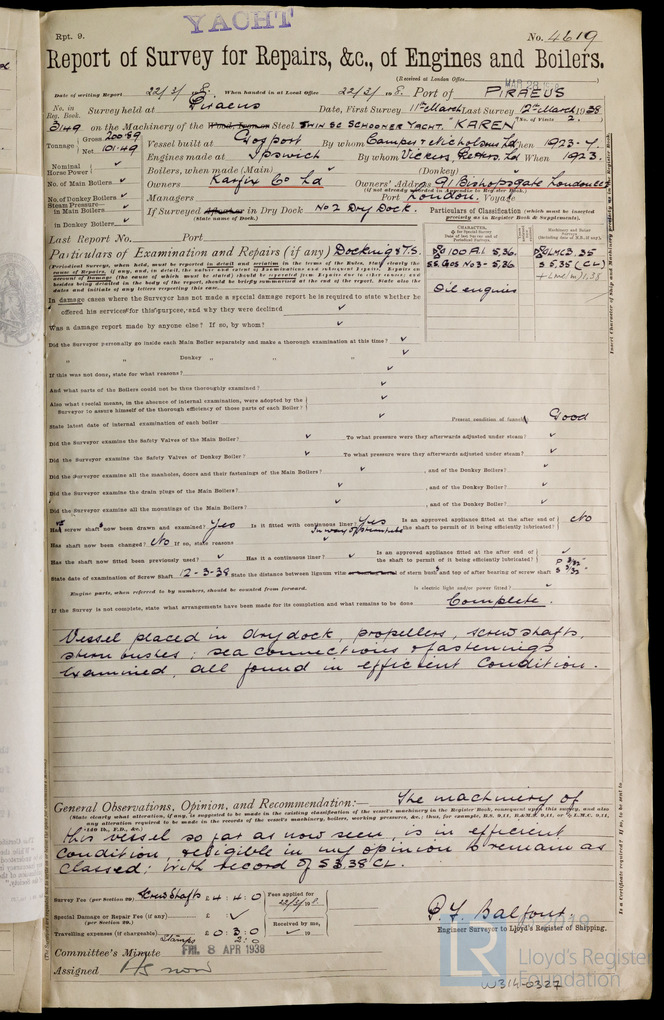 YACHT
Rpt. 9.
No. 4619
Report of Survey for Repairs, &c., of Engines and Boilers.
(Received at London Office
MAR 28
Date of writing Report 22/3/ When handed in at Local Office 22/3/ Port of PIRAEUS
No. in Reg. Book. Survey held at Piraeus Date, First Survey 11th March Last Survey 12th March 1938
(No. of Visits 2.)
3149 on the Machinery of the Wood, Steel TWIN SC SCHOONER YACHT. "KAREN"
Tonnage Gross 200.89 Net 101.49
Vessel built at Gosport By whom Camper & Nicholsons Ltd when 1923-7
Engines made at Ipswich By whom Vickers, Petters, Ltd When 1923.
Nominal Horse Power
Boilers, when made (Main) (Donkey)
No. of Main Boilers
Owners Karfix Co Ltd Owners' Address 91 Bishopsgate London EC2
(if not already recorded in Appendix to Register Book.)
No. of Donkey Boilers
Managers Port London. Voyage
Steam Pressure in Main Boilers
If Surveyed Afloat or in Dry Dock No 2 Dry Dock.
(State name of Dock.)
in Donkey Boilers
Particulars of Classification (which must be inserted precisely as in Register Book & Supplement).
Last Report No. Port
Particulars of Examination and Repairs (if any) Docking & T.S.
100 A1 5,36.
SS Gos No3 - 5,36
LMC 3. 35
S 5,35 (CL)
Oil engines
In damage cases where the Surveyor has not made a special damage report he is required to state whether he
offered his services for this purpose, and why they were declined
Was a damage report made by anyone else? If so, by whom?
Did the Surveyor personally go inside each Main Boiler separately and make a thorough examination at this time?
" " Donkey " " "
If this was not done, state for what reasons?
And what parts of the Boilers could not be thus thoroughly examined?
Also what special means, in the absence of internal examination, were adopted by the
Surveyor to assure himself of the thorough efficiency of those parts of each Boiler?
State latest date of internal examination of each boiler Present condition of funnel Good
Did the Surveyor examine the Safety Valves of the Main Boiler? To what pressure were they afterwards adjusted under steam?
Did the Surveyor examine the Safety Valves of Donkey Boiler? To what pressure were they afterwards adjusted under steam?
Did the Surveyor examine all the manholes, doors and their fastenings of the Main Boilers? , and of the Donkey Boilers?
Did the Surveyor examine the drain plugs of the Main Boilers? , and of the Donkey Boilers?
Did the Surveyor examine all the mountings of the Main Boilers? , and of the Donkey Boilers?
Has screw shaft now been drawn and examined? Yes Is it fitted with continuous liner? Yes Is an approved appliance fitted at the after end of the shaft to permit of it being efficiently lubricated? No
Has shaft now been changed? No If so, state reasons
Has the shaft now fitted been previously used? Has it a continuous liner? Is an approved appliance fitted at the after end of the shaft to permit of it being efficiently lubricated?
State date of examination of Screw Shaft 12-3-38 State the distance between lignum vitæ of stern bush and top of after bearing of screw shaft P 3/32" S 3/32"
Engine parts, when referred to by numbers, should be counted from forward. Is electric light and/or power fitted?
If the Survey is not complete, state what arrangements have been made for its completion and what remains to be done Complete.
Vessel placed in dry dock, propellers, screwshafts,
stern bushes, sea connections & fastenings
examined, all found in efficient condition.
General Observations, Opinion, and Recommendation:— The machinery of
(State clearly what alteration, if any, is suggested to be made in the existing classification of the vessel's machinery in the Register Book, consequent upon this survey, and also
this vessel so far as now seen, is in efficient
condition, & eligible in my opinion to remain as
classed; with record of S 3.38 CL.
Survey Fee (per Section 29) Screwshafts £ 4 : 4 : 0
Fees applied for 22/3/
Special Damage or Repair Fee (if any) £
(per Section 29.)
Received by me,
Travelling expenses (if chargeable) £ 0 : 3 : 0
Stamps 2:0
P. F. Balfour.
Engineer Surveyor to Lloyd's Register of Shipping.
Committee's Minute FRI. 8 APR 1938
Assigned As now
LR
2019
Lloyd's Register
Foundation
W314-0327